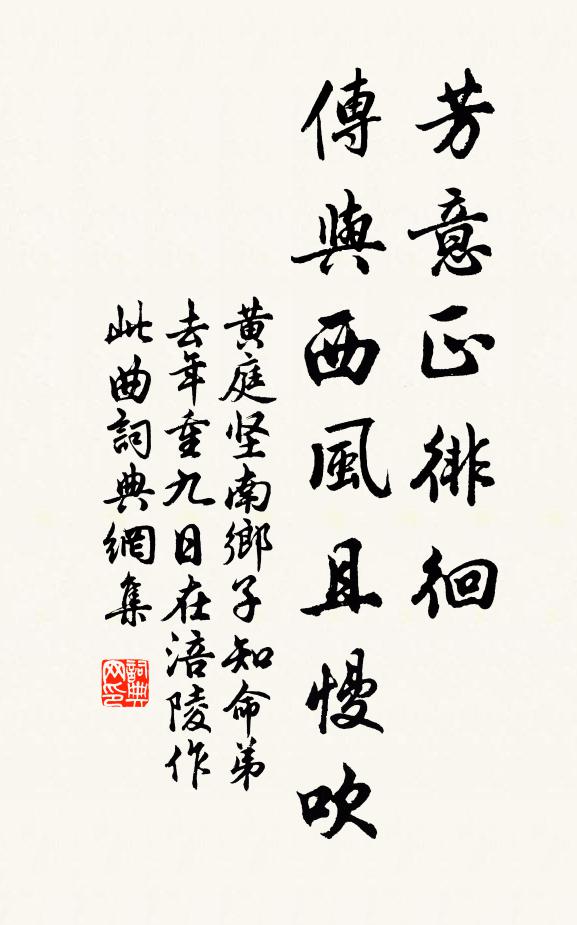 芳意正徘徊
傳與西風且慢吹
黃庭坚南鄉子知命弟
去年重九日在涪陵作
此曲詞典網集
詞典网印